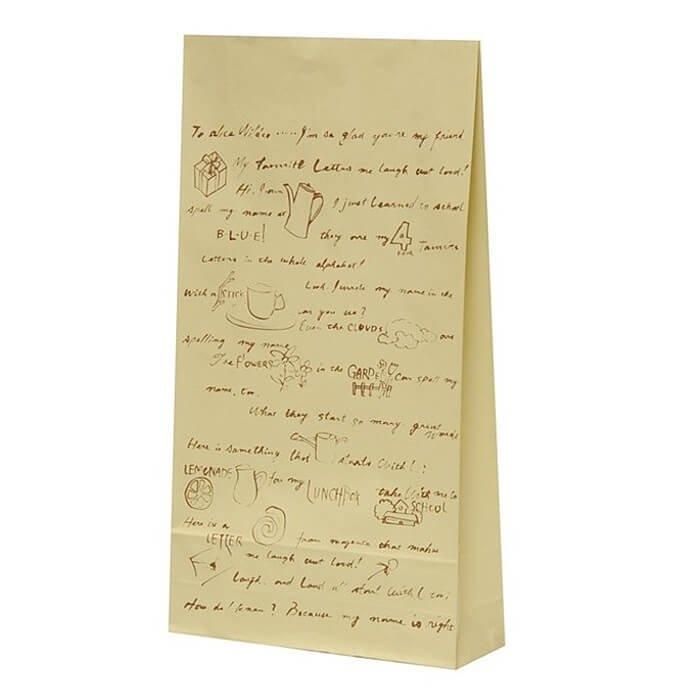 To alice Wilder ..... I'm so glad you're my friend
My Favorite Letters me laugh out loud!
Hi, I'm I just learned to school
spell my name at
B·L·U·E! they are my 4 Favorite
Letters in the whole alphabet!
Look, I wrote my name in the
With a STICK
can you see?
Even the CLOUDS are
spelling my name
The FLOWERS in the GARDEN Can spell my
name, too.
What they start so many great Words
Here is something that starts With L:
LEMONADE for my LUNCHBOX take With me to
SCHOOL
Here is a
LETTER from magenta that makes
me laugh out loud!
Laugh, and Loud start With L too;
How do I know? Because my name is right